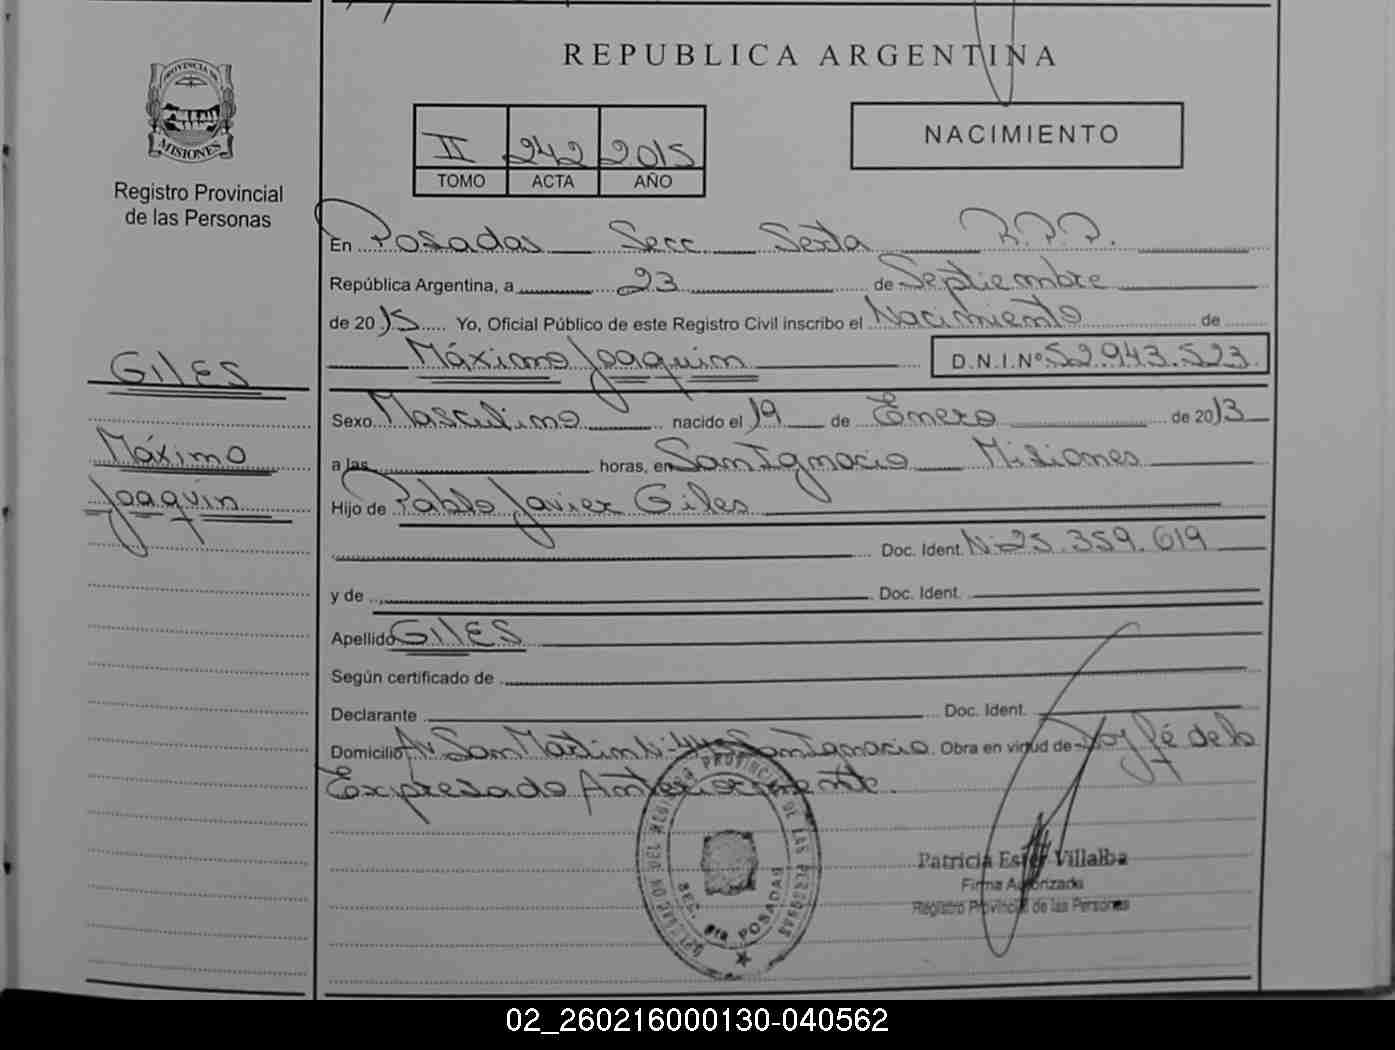 REPUBLICA ARGENTINA
PROVINCIA DE
MISIONES
Registro Provincial
de las Personas
II 242 2015
TOMO ACTA AÑO
NACIMIENTO
En Posadas Secc Sexta R.P.P.
República Argentina, a 23 de Septiembre
de 2015 Yo, Oficial Público de este Registro Civil inscribo el Nacimiento de
Máximo Joaquin D.N.I.Nº 52.943.523
GILES
Máximo
Joaquín
Sexo Masculino nacido el 19 de Enero de 2013
a las horas, en San Ignacio Misiones
Hijo de Pablo Javier Giles
Doc. Ident. Nº 25.359.619
y de Doc. Ident.
Apellido GILES
Según certificado de
Declarante Doc. Ident.
Domicilio Av San Martin Nº San Ignacio. Obra en virtud de Doy fé de lo
Expresado Anteriormente.
REGISTRO PROVINCIAL DE LAS PERSONAS
SEC. 6ta POSADAS
Patricia Ester Villalba
Firma Autorizada
Registro Provincial de las Personas
02_260216000130-040562